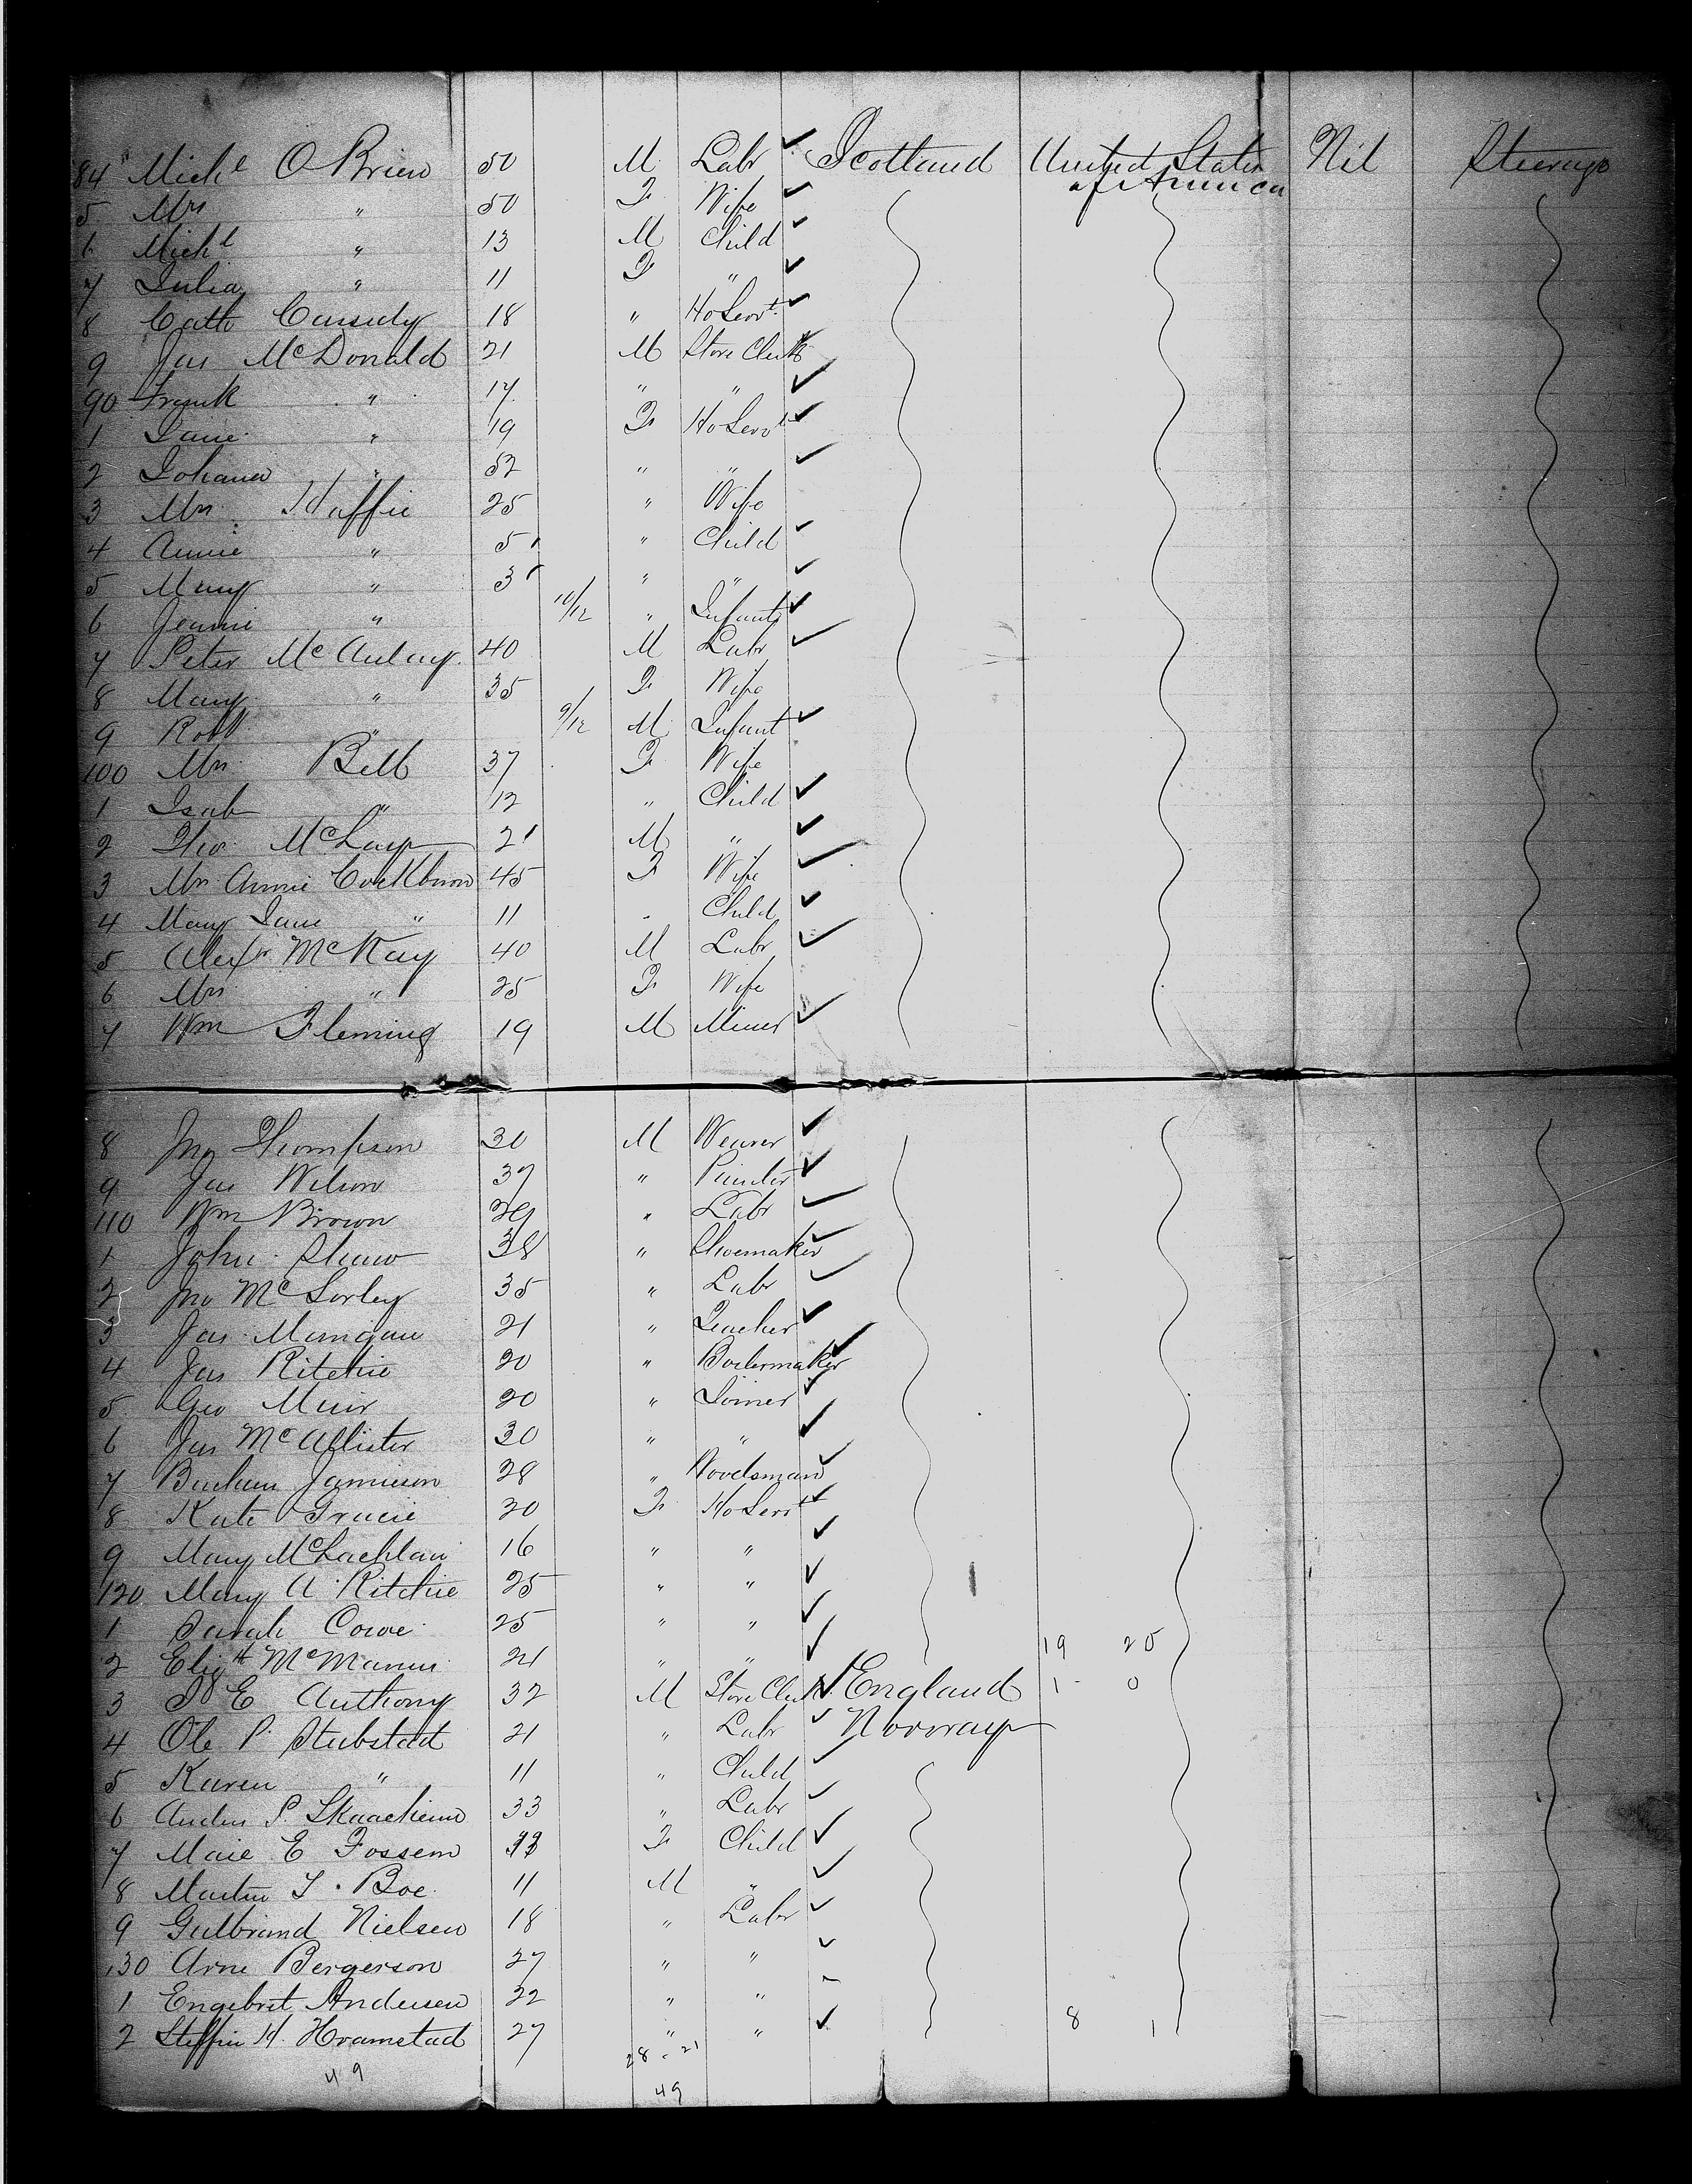 84 Michl O Brien 50 M Labr Scotland United States of America Nil Steerage
5 Mrs " 50 F Wife
6 Michl " 13 M Child
7 Julia " 11 F "
8 Cath Cassidy 18 " Ho Servt
9 Jas McDonald 21 M Store Clerk
90 Frank " 17 " "
1 Jane " 19 F Ho Servt
2 Johana " 52 " "
3 Mrs Haffie 25 " Wife
4 Annie " 5 " Child
5 Mary " 3 " "
6 Jeannie " 10/12 " Infant
7 Peter McAulay 40 M Labr
8 Mary " 35 F Wife
9 Robt " 9/12 M Infant
100 Mrs Bell 37 F Wife
1 Isab " 12 " Child
2 Thos McLay 21 M "
3 Mrs Annie Cockburn 45 F Wife
4 Mary Jane " 11 " Child
5 Alexr McKay 40 M Labr
6 Mrs " 25 F Wife
7 Wm Fleming 19 M Miner
8 Jno Thompson 30 M Weaver
9 Jas Wilson 37 " Painter
110 Wm Brown " Labr
1 John Shaw 38 " Shoemaker
2 Jno McSorley 35 " Labr
3 Jas Mangan 21 " Teacher
4 Jas Ritchie 20 " Boilermaker
5 Geo Muir 20 " Joiner
6 Jas McAllister 30 " "
7 Jamieson 28 " Woodsman
8 Kate Gracie 20 F Ho Servt
9 Mary McLachlan 16 " "
120 Mary A Ritchie 25 " "
1 Sarah Cowe 25 " "
2 Elizth McManus 21 " " 19 20
3 J E Anthony 32 M Store Clerk England 1 0
4 Ole P. Stubstad 21 " Labr Norway
5 Karen " 11 " Child
6 Anders P. 33 " Labr
7 Marie E Fossem F Child
8 Martin T. Boe 11 M "
9 Gulbrand Nielsen 18 " Labr
130 Arne Bergerson 27 " "
1 Engebret Andersen 22 " "
2 Steffen H. Hramstad 27 " " 8 1
49 28 - 21
49